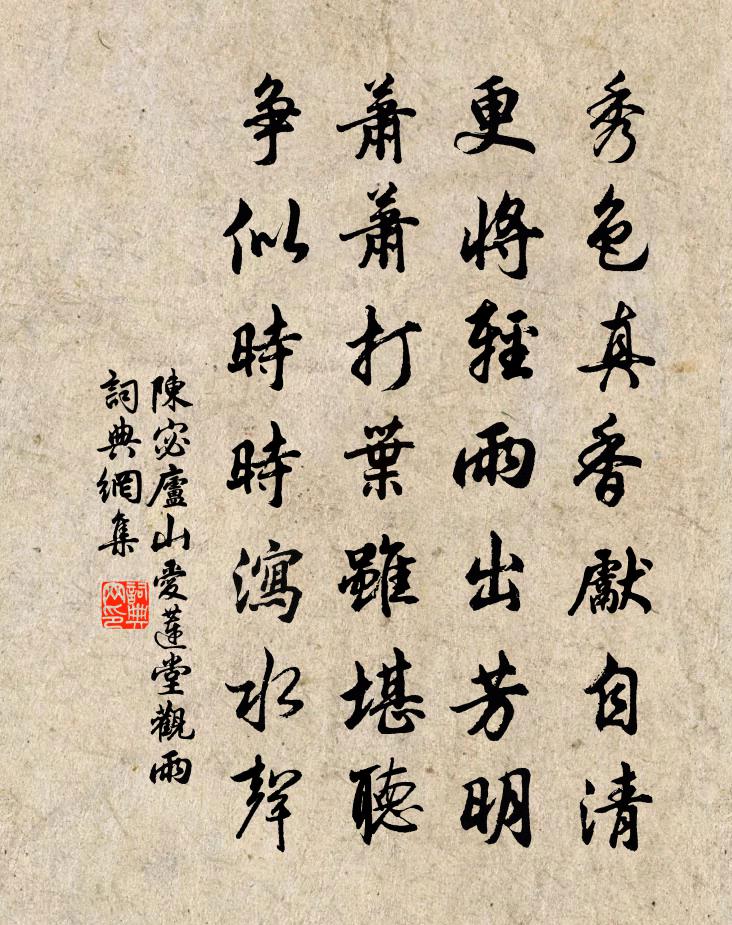 秀色真香獻自清
更將輕雨出芳明
蕭蕭打葉雖堪聽
争似時時瀉水聲
陳宓廬山愛蓮堂觀雨
詞典網集
詞典
网印